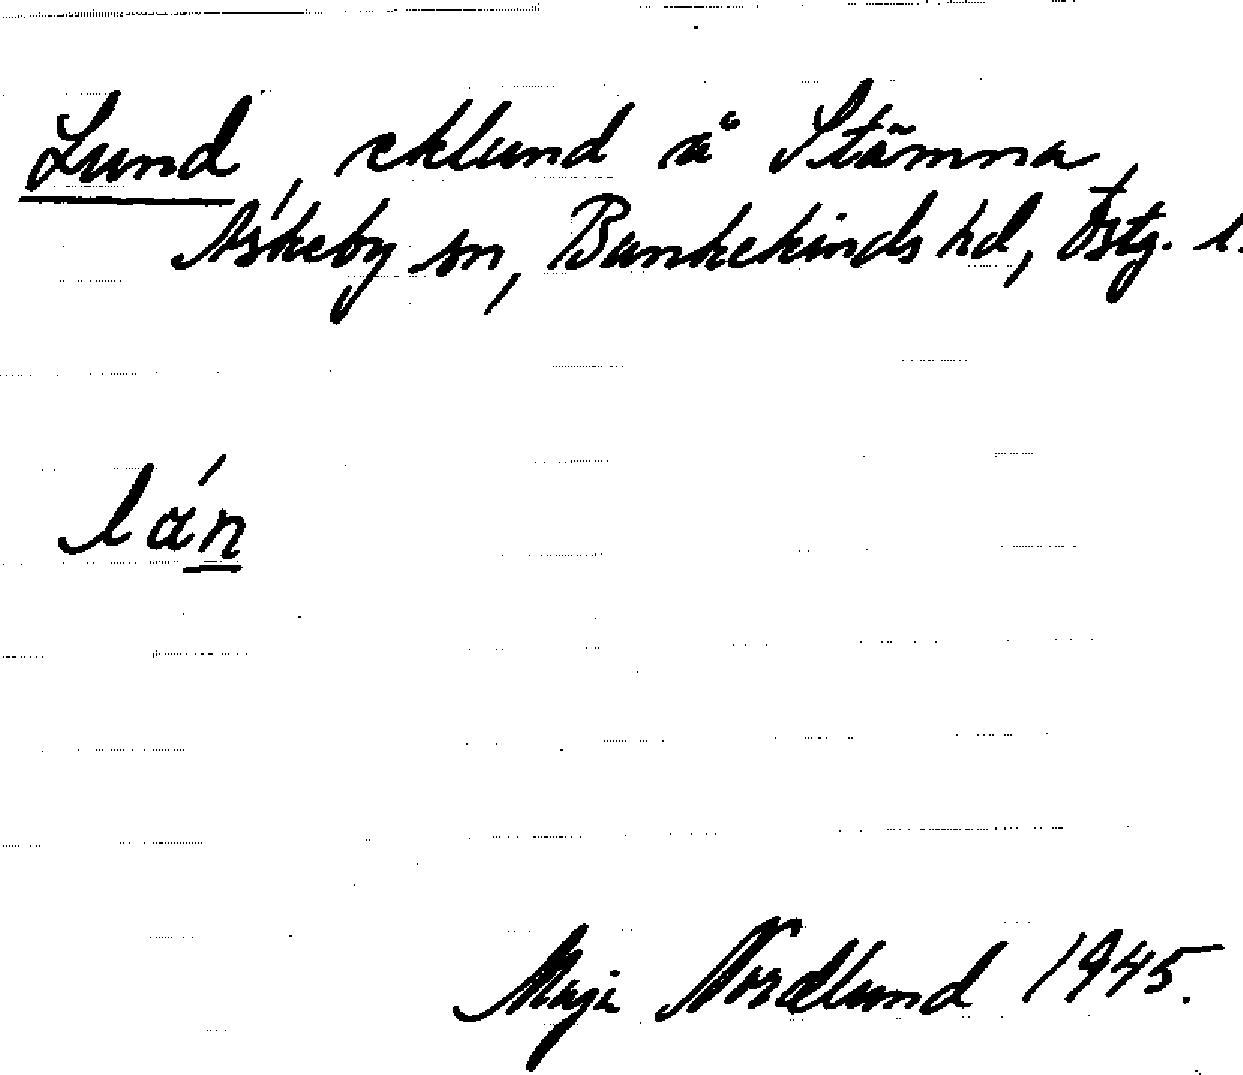 Lund, eklund å Stämna,
Askeby sn, Bankekinds hd, Östg. l.
lán
Maja Nordlund 1945.